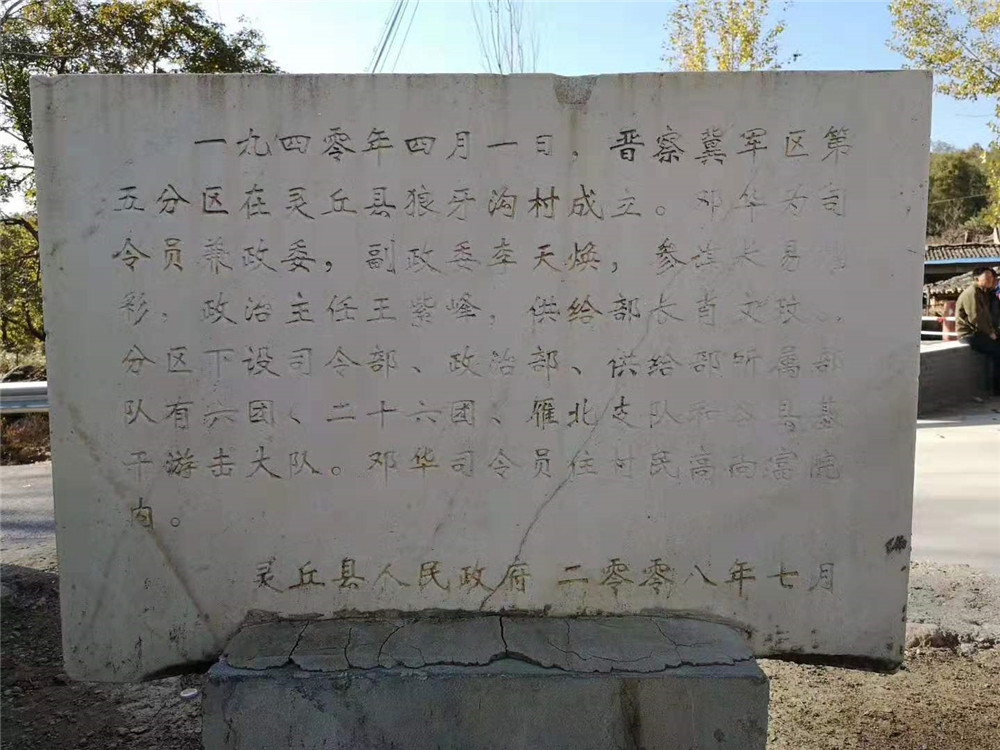 一九四零年四月一日，晋察冀军区第
五分区在灵丘县狼牙沟村成立。邓华为司
令员兼政委，副政委李天焕，参谋长易
彩，政治主任王紫峰，供给部长肖文玫
分区下设司令部、政治部、供给部所属部
队有六团、二十六团、雁北支队和各县基
干游击大队。邓华司令员住村民高尚富院
内。
灵丘县人民政府 二零零八年七月